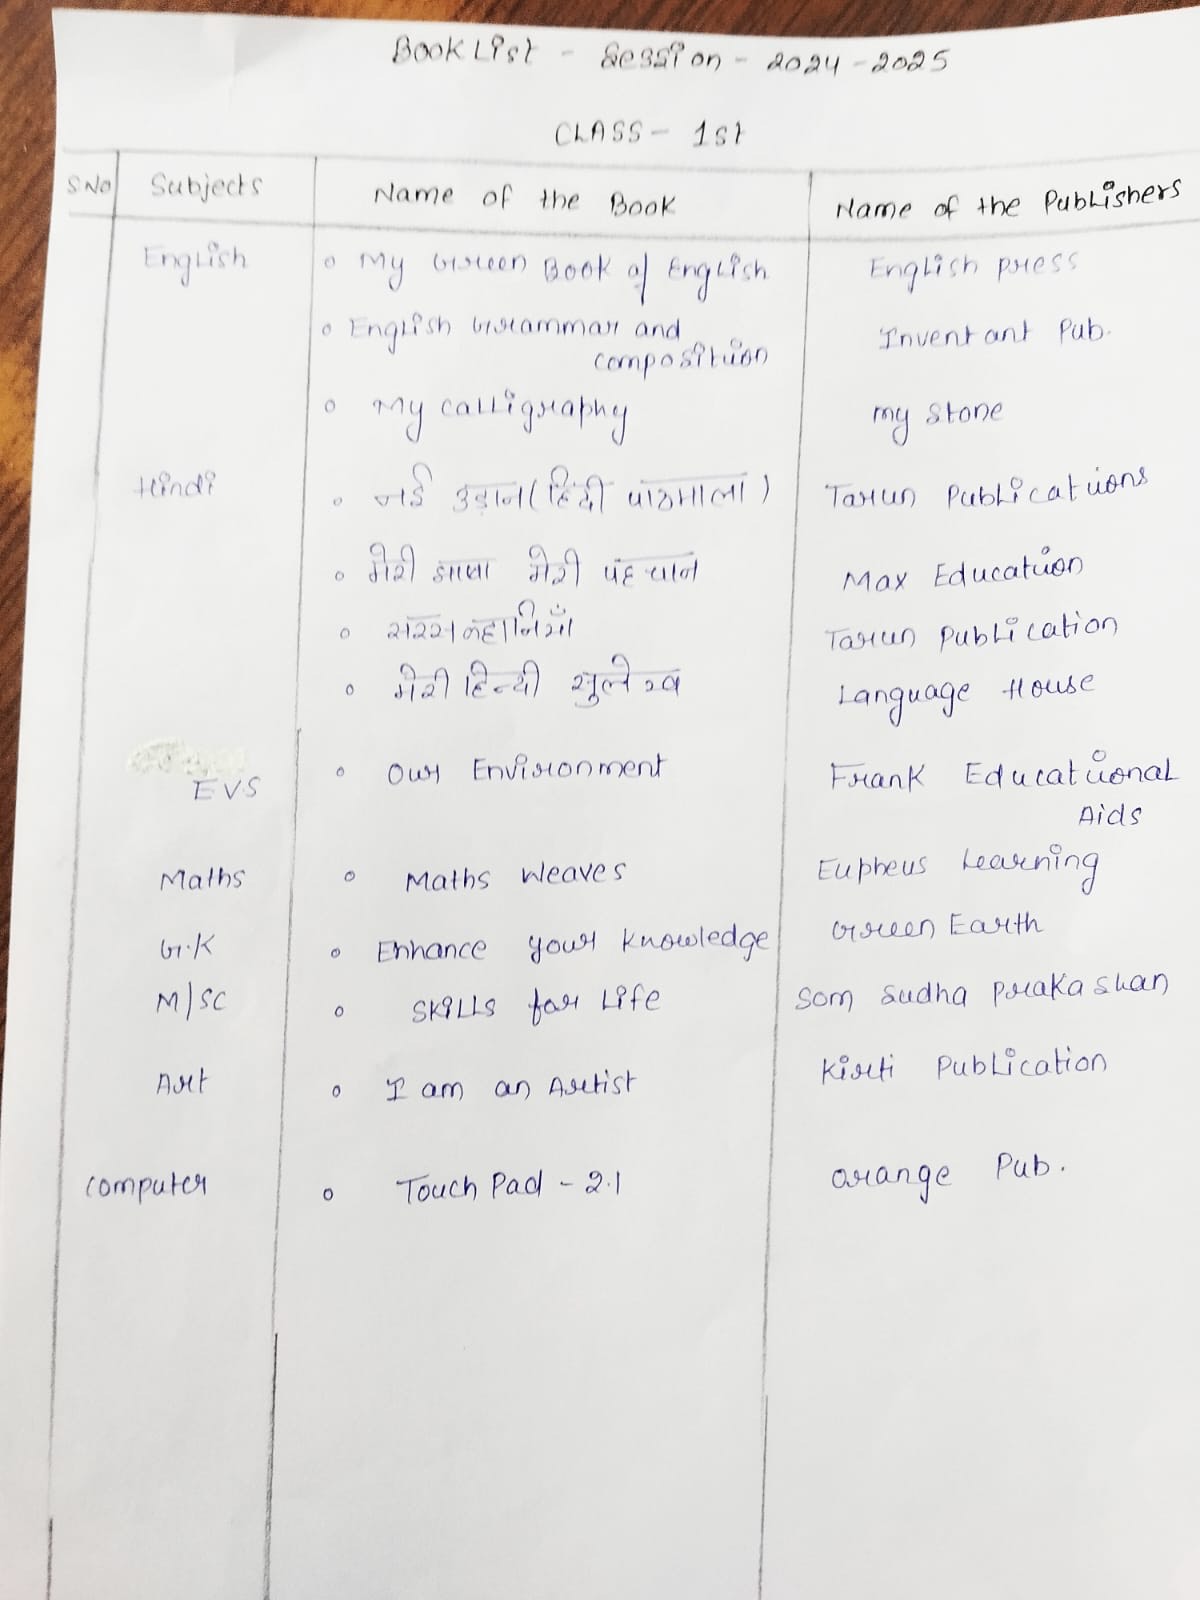 Book List - Session - 2024-2025
CLASS - 1st
S No Subjects Name of the Book Name of the Publishers
English ० My Green Book of English English press
० English Grammar and Inventant Pub.
composition
० My calligraphy my Stone
Hindi ० नई उड़ान (हिंदी पाठमाला) Tarun Publications
० मेरी भाषा मेरी पहचान Max Education
० सरस कहानियाँ Tarun Publication
० मेरी हिन्दी सुलेख Language House
EVS ० Our Environment Frank Educational
Aids
Maths ० Maths Weaves Eupheus Learning
G.K ० Enhance your knowledge Green Earth
M/SC ० Skills for Life Som Sudha Prakashan
Art ० I am an Artist Kirti Publication
Computer ० Touch Pad - 2.1 Orange Pub.